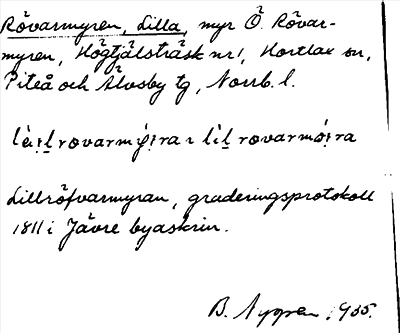 Rövarmyren, Lilla, myr Ö. Rövar-
myren, Högtjälsträsk nr 1, Hortlax sn,
Piteå och Älvsby tg, Norrb. l.
rovarmý:ra l rovarmó:ra
Lillröfvarmyran, graderingsprotokoll
1811 i Jävre byaskrin.
B. Nygren 1935.